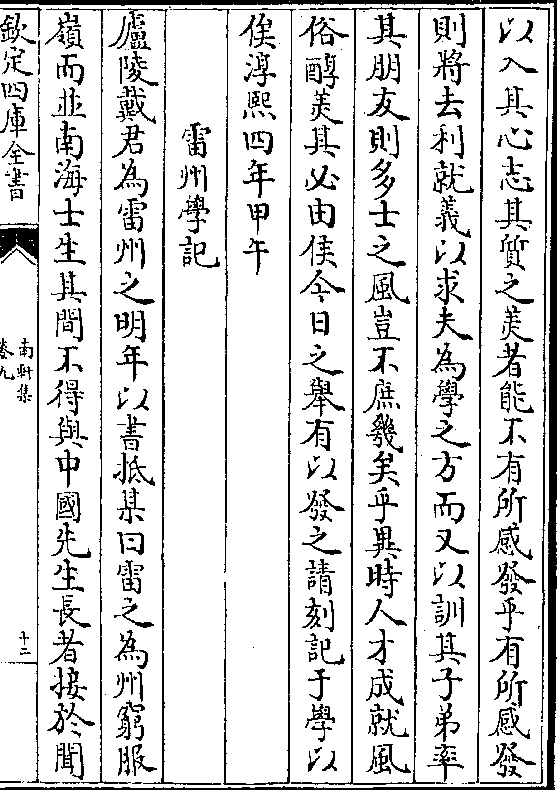 以入其心志其質之美者能不有所感發乎有所感發
則將去利就義以求夫為學之方而又以訓其子弟率
其朋友則多士之風豈不庶幾矣乎異時人才成就風
俗醇美其必由侯今日之舉有以發之請刻記于學以
俟淳熙四年甲午
雷州學記
廬陵戴君為雷州之明年以書抵某曰雷之為州窮服
嶺而並南海士生其間不得與中國先生長者接於聞
欽定四庫全書
南軒集
卷九
十二